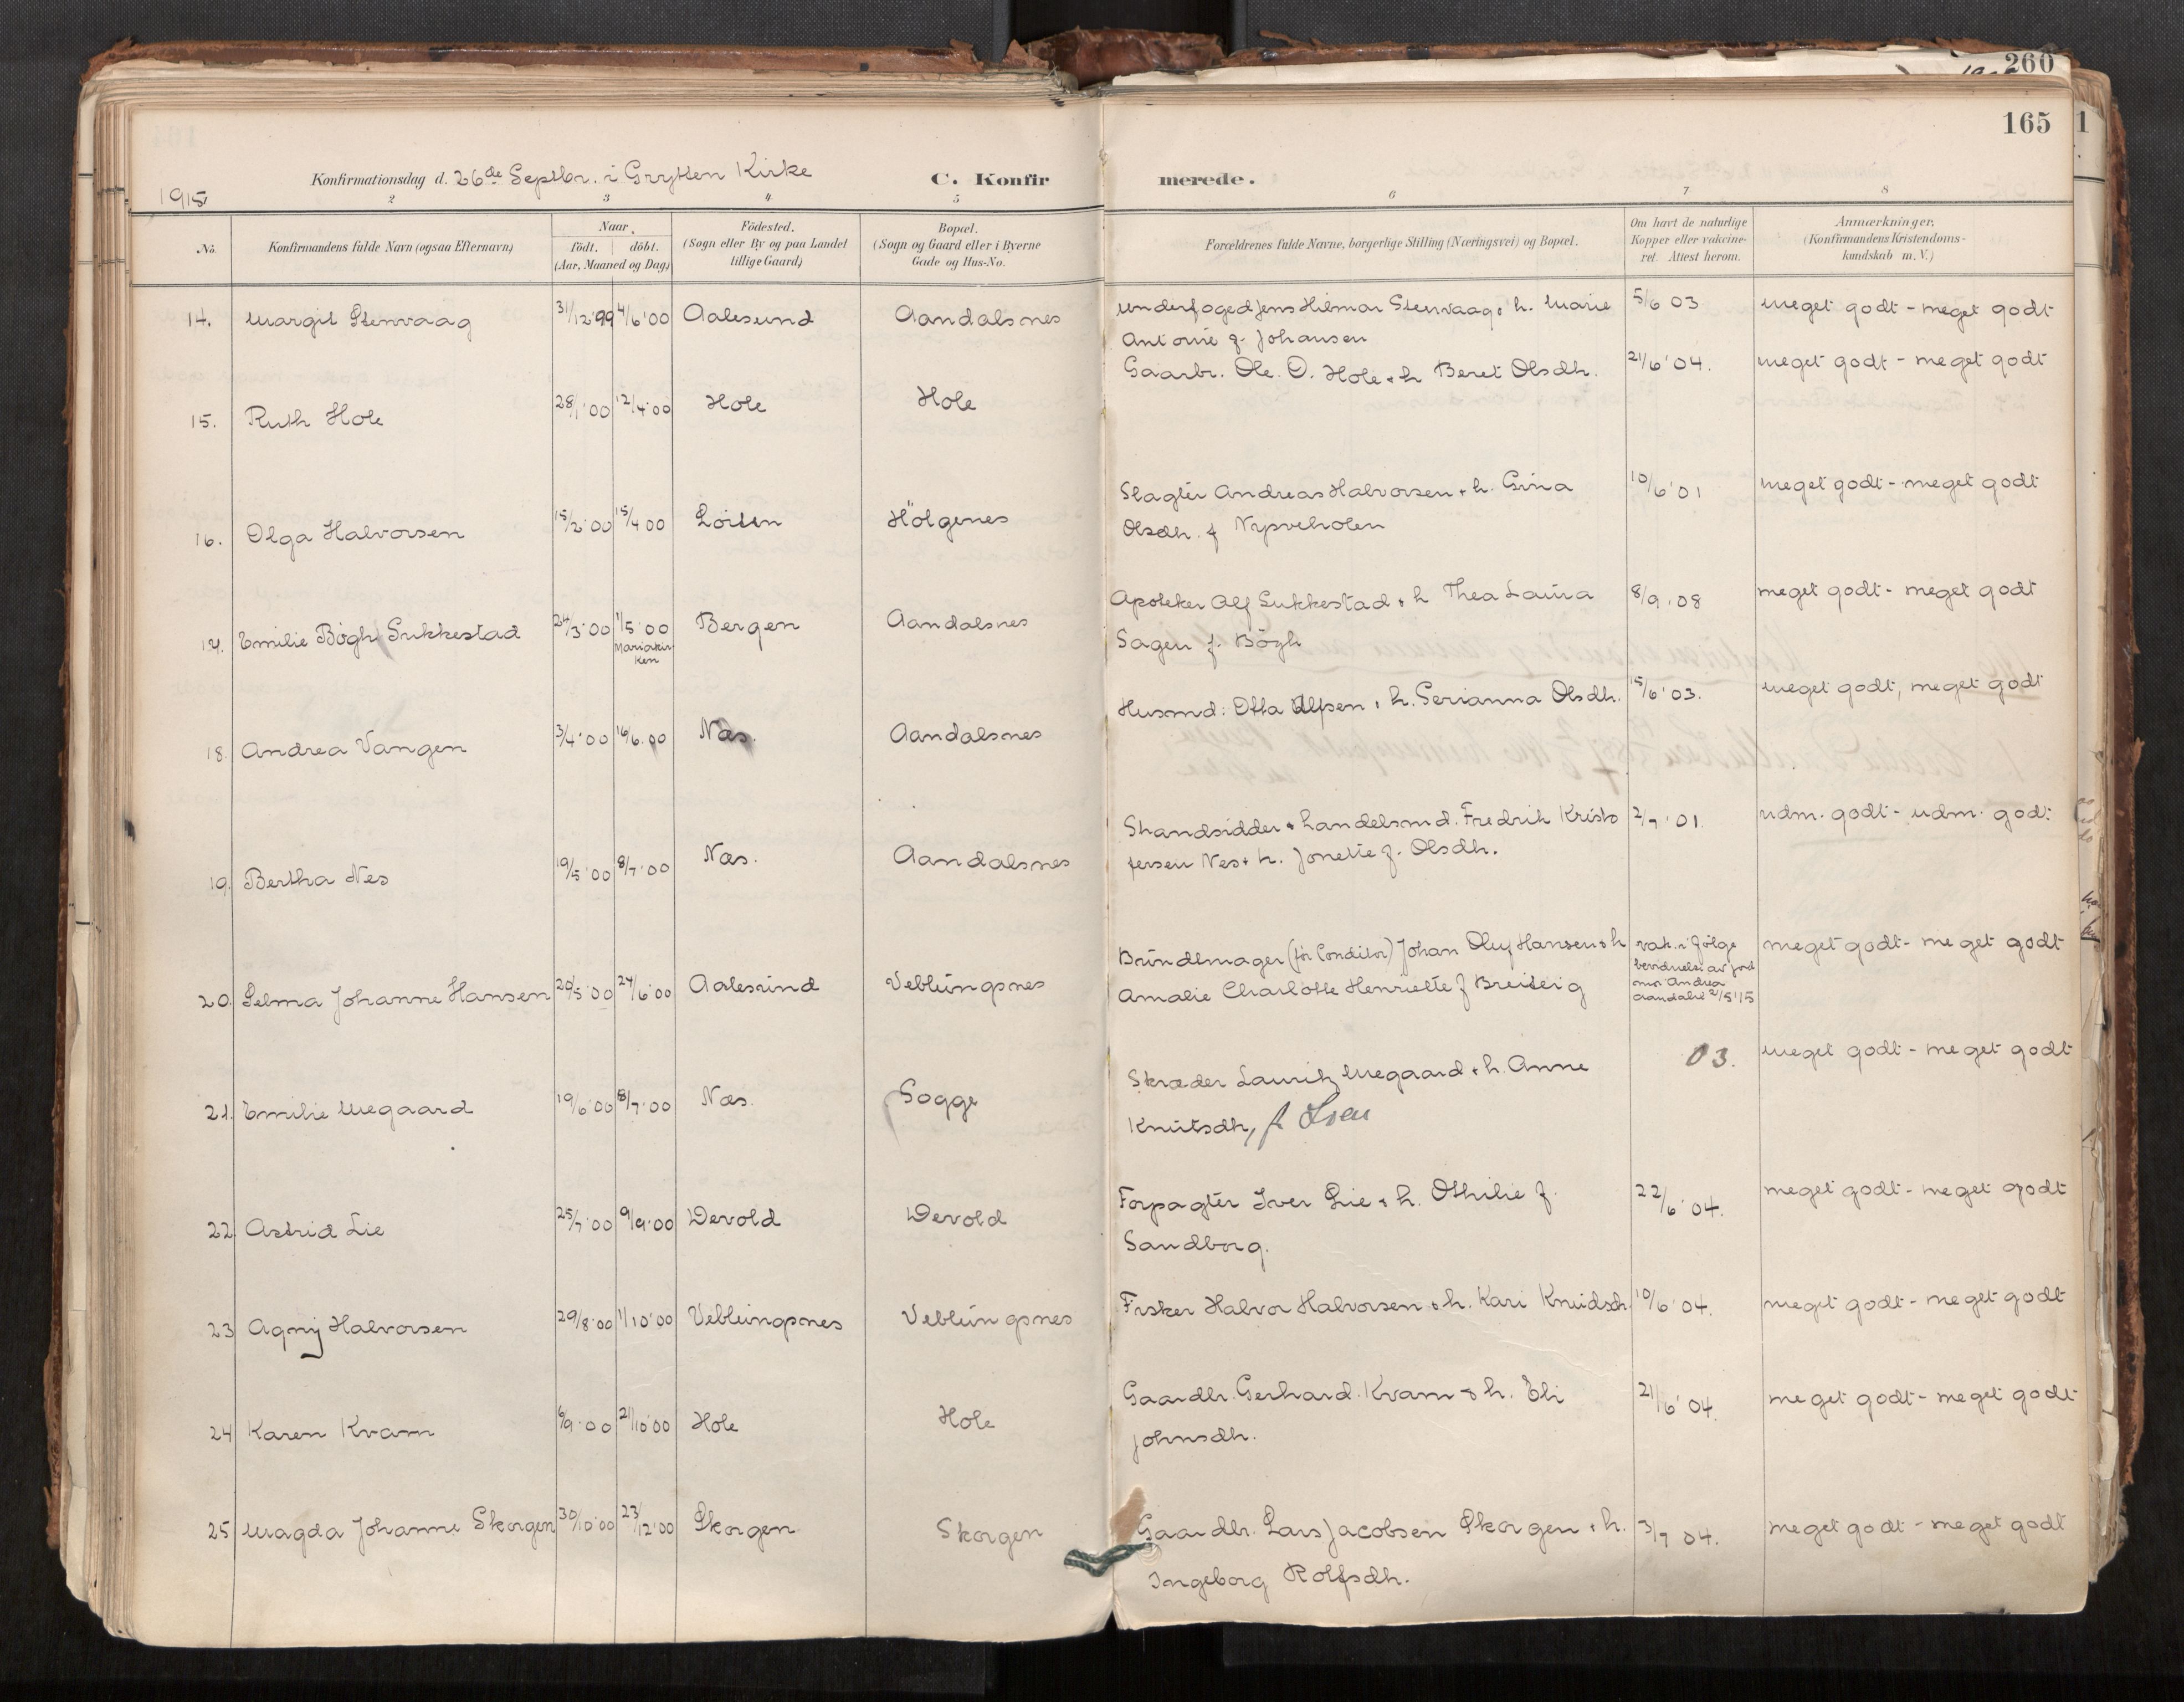 260
165
Konfirmationsdag d. 26de Septbr. i Grytten Kirke
C. Konfirmerede.
1915
2 3 4 5 6 7 8
No.
Konfirmandens fulde Navn (ogsaa Efternavn)
Naar
födt. döbt.
(Aar, Maaned og Dag)
Födested.
(Sogn eller By og paa Landet
tillige Gaard)
Bopæl.
(Sogn og Gaard eller i Byerne
Gade og Hus-No.
Forældrenes fulde Navne, borgerlige Stilling (Næringsvei) og Bopæl.
Om havt de naturlige
Kopper eller vakcine-
ret. Attest herom.
Anmærkninger.
(Konfirmandens Kristendoms-
kundskab m. V.)
14. Margit Stenvaag 31/12'99 4/6'00 Aalesund Aandalsnes Underfoged Jens Hilmar Stenvaag & h. Marie 5/6 03 meget godt - meget godt
Antonie f. Johansen
15. Ruth Hole 28/1'00 12/4'00 Hole Hole Gaarbr. Ole O. Hole & h Beret Olsdh. 21/6'04. meget godt - meget godt
16. Olga Halvorsen 15/2'00 15/4 00 Löiten Hölgenes Slagter Andreas Halvorsen & h. Gina 10/6'01 meget godt - meget godt
Olsdh. f Nysveholen
17. Emilie Bögh Sukkestad 24/3'00 1/5 00 Bergen Aandalsnes Apoteker Alf Sukkestad & h Thea Laura 8/9.08 meget godt - meget godt
Mariakir-
ken
Sagen f. Bögh
18. Andrea Vangen 3/4'00 16/6.00 Næs. Aandalsnes Husmd. Otta Ulpen & h. Serianna Olsdh. 15/6'03. meget godt, meget godt
19. Bertha Nes 19/5'00 8/7'00 Næs. Aandalsnes Strandsidder & handelsmd. Fredrik Kristo 2/7'01. udm. godt - udm. godt
fersen Nes & h. Jonette f. Olsdh.
20. Selma Johanne Hansen 20/5'00 24/6'00 Aalesund Veblungsnes Bundtmager (för Conditor) Johan Oluf Hansen & h vak. i fölge meget godt - meget godt
bevidnelse av jord
Amalie Charlotte Henriette f Breiteig
mor Andrea
Aandahl 2/8'15
21. Emilie Megaard 19/6'00 8/7'00 Næs. Sogge Skræder Lauritz Megaard & h. Anne 03. meget godt - meget godt
Knutsdh, f.
22. Astrid Lie 25/7'00 9/9'00 Devold Devold Forpagter Iver Lie & h. Othilie f. 22/6'04. meget godt - meget godt
Sandborg.
23 Agny Halvorsen 29/8'00 1/10'00 Veblungsnes Veblungsnes Fisker Halvor Halvorsen & h. Kari Knudsdh. 10/6'04. meget godt - meget godt
24 Karen Kvam 6/9'00 21/10'00 Hole Hole Gaardbr. Gerhard Kvam & h. Eli 21/6'04. meget godt - meget godt
Johnsdh.
25 Magda Johanne Skorgen 30/10'00 23/12'00 Skorgen Skorgen Gaardbr. Lars Jacobsen Skorgen & h. 3/7 04. meget godt - meget godt
Ingeborg Rolfsdh.